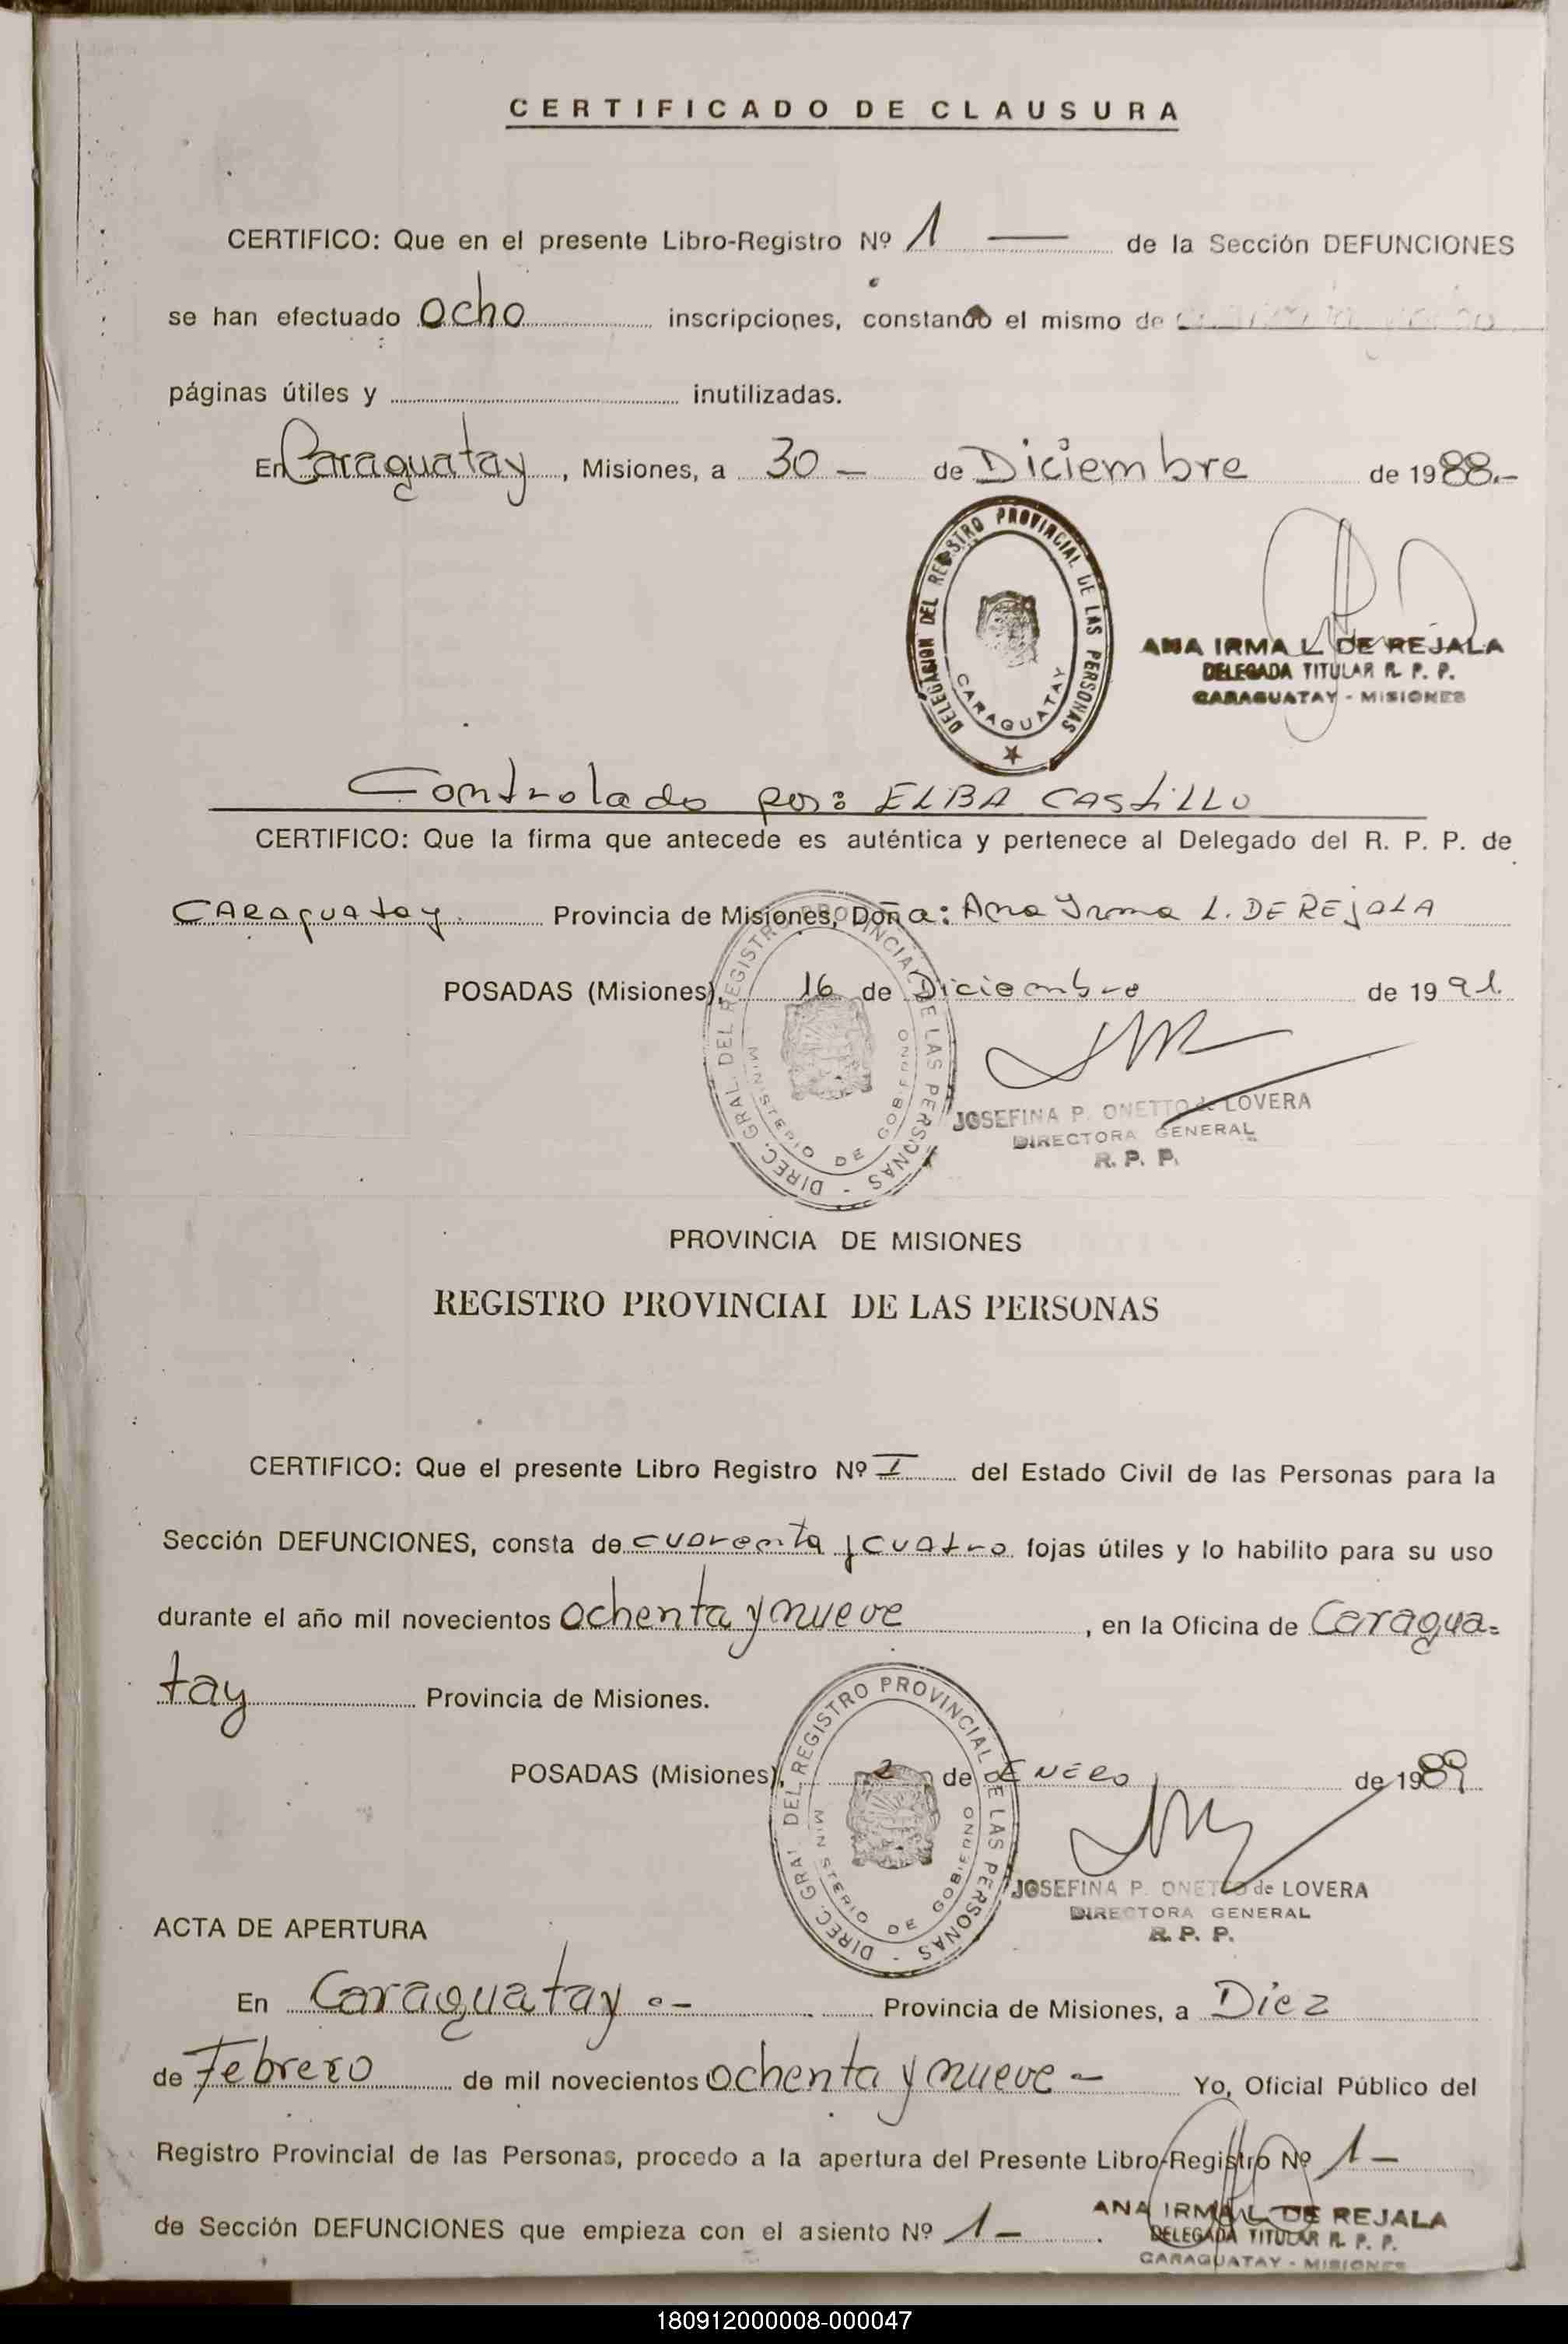 CERTIFICADO DE CLAUSURA
CERTIFICO: Que en el presente Libro-Registro Nº 1 — de la Sección DEFUNCIONES
se han efectuado Ocho inscripciones, constando el mismo de
páginas útiles y inutilizadas.
En Caraguatay, Misiones, a 30 — de Diciembre de 1988.-
DELEGACION DEL REGISTRO PROVINCIAL DE LAS PERSONAS
CARAGUATAY
ANA IRMA L. DE REJALA
DELEGADA TITULAR R. P. P.
CARAGUATAY - MISIONES
Controlado por: ELBA CASTILLO
CERTIFICO: Que la firma que antecede es auténtica y pertenece al Delegado del R. P. P. de
CARAGUATAY. Provincia de Misiones, Doña: Ana Irma L. DE REJALA
POSADAS (Misiones), 16 de Diciembre de 1991.
DIREC. GRAL. DEL REGISTRO PROVINCIAL DE LAS PERSONAS -
MINISTERIO DE GOBIERNO
JOSEFINA P. ONETTO de LOVERA
DIRECTORA GENERAL
R. P. P.
PROVINCIA DE MISIONES
REGISTRO PROVINCIAL DE LAS PERSONAS
CERTIFICO: Que el presente Libro Registro Nº I del Estado Civil de las Personas para la
Sección DEFUNCIONES, consta de cuarenta y cuatro fojas útiles y lo habilito para su uso
durante el año mil novecientos ochenta y nueve, en la Oficina de Caragua=
tay Provincia de Misiones.
POSADAS (Misiones), 2 de ENERO de 1989
DIREC. GRAL. DEL REGISTRO PROVINCIAL DE LAS PERSONAS -
MINISTERIO DE GOBIERNO
JOSEFINA P. ONETTO de LOVERA
DIRECTORA GENERAL
R. P. P.
ACTA DE APERTURA
En Caraguatay .- Provincia de Misiones, a Diez
de Febrero de mil novecientos ochenta y nueve - Yo, Oficial Público del
Registro Provincial de las Personas, procedo a la apertura del Presente Libro-Registro Nº 1 -
de Sección DEFUNCIONES que empieza con el asiento Nº 1 - .
ANA IRMA L. DE REJALA
DELEGADA TITULAR R. P. P.
CARAGUATAY - MISIONES
180912000008-000047